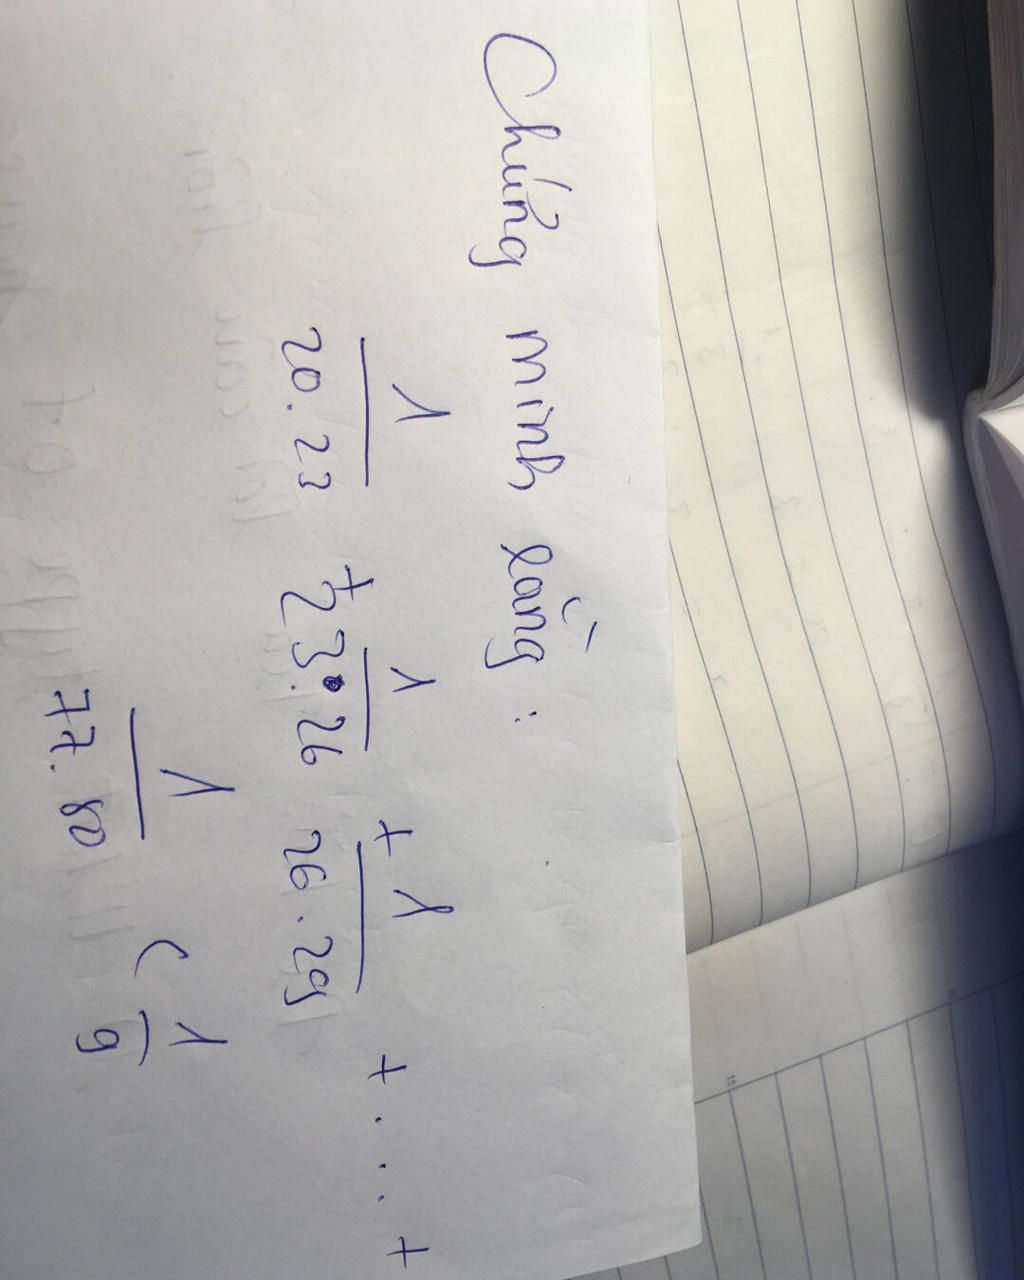 Chứng minh rằng :
1/20.23 + 1/23.26 + 1/26.29 + ... +
1/77.80 < 1/9